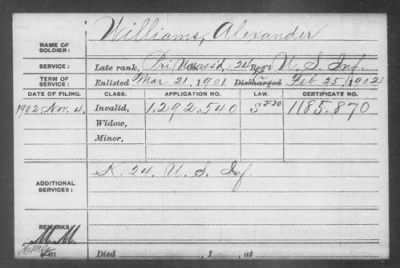 Williams, Alexander
NAME OF SOLDIER:
SERVICE: Late rank, Pri Unassd, 24 Reg't U. S. Inf.
TERM OF SERVICE: Enlisted Mar 21, 1901 Discharged Feb 25, 1902
DATE OF FILING. CLASS. APPLICATION NO. LAW. CERTIFICATE NO.
1902 Nov. 4, Invalid, 1.292.540 1185.870
Widow,
Minor,
ADDITIONAL SERVICES: K. 24, U. S. Inf.
REMARKS:
Died , 1 , at